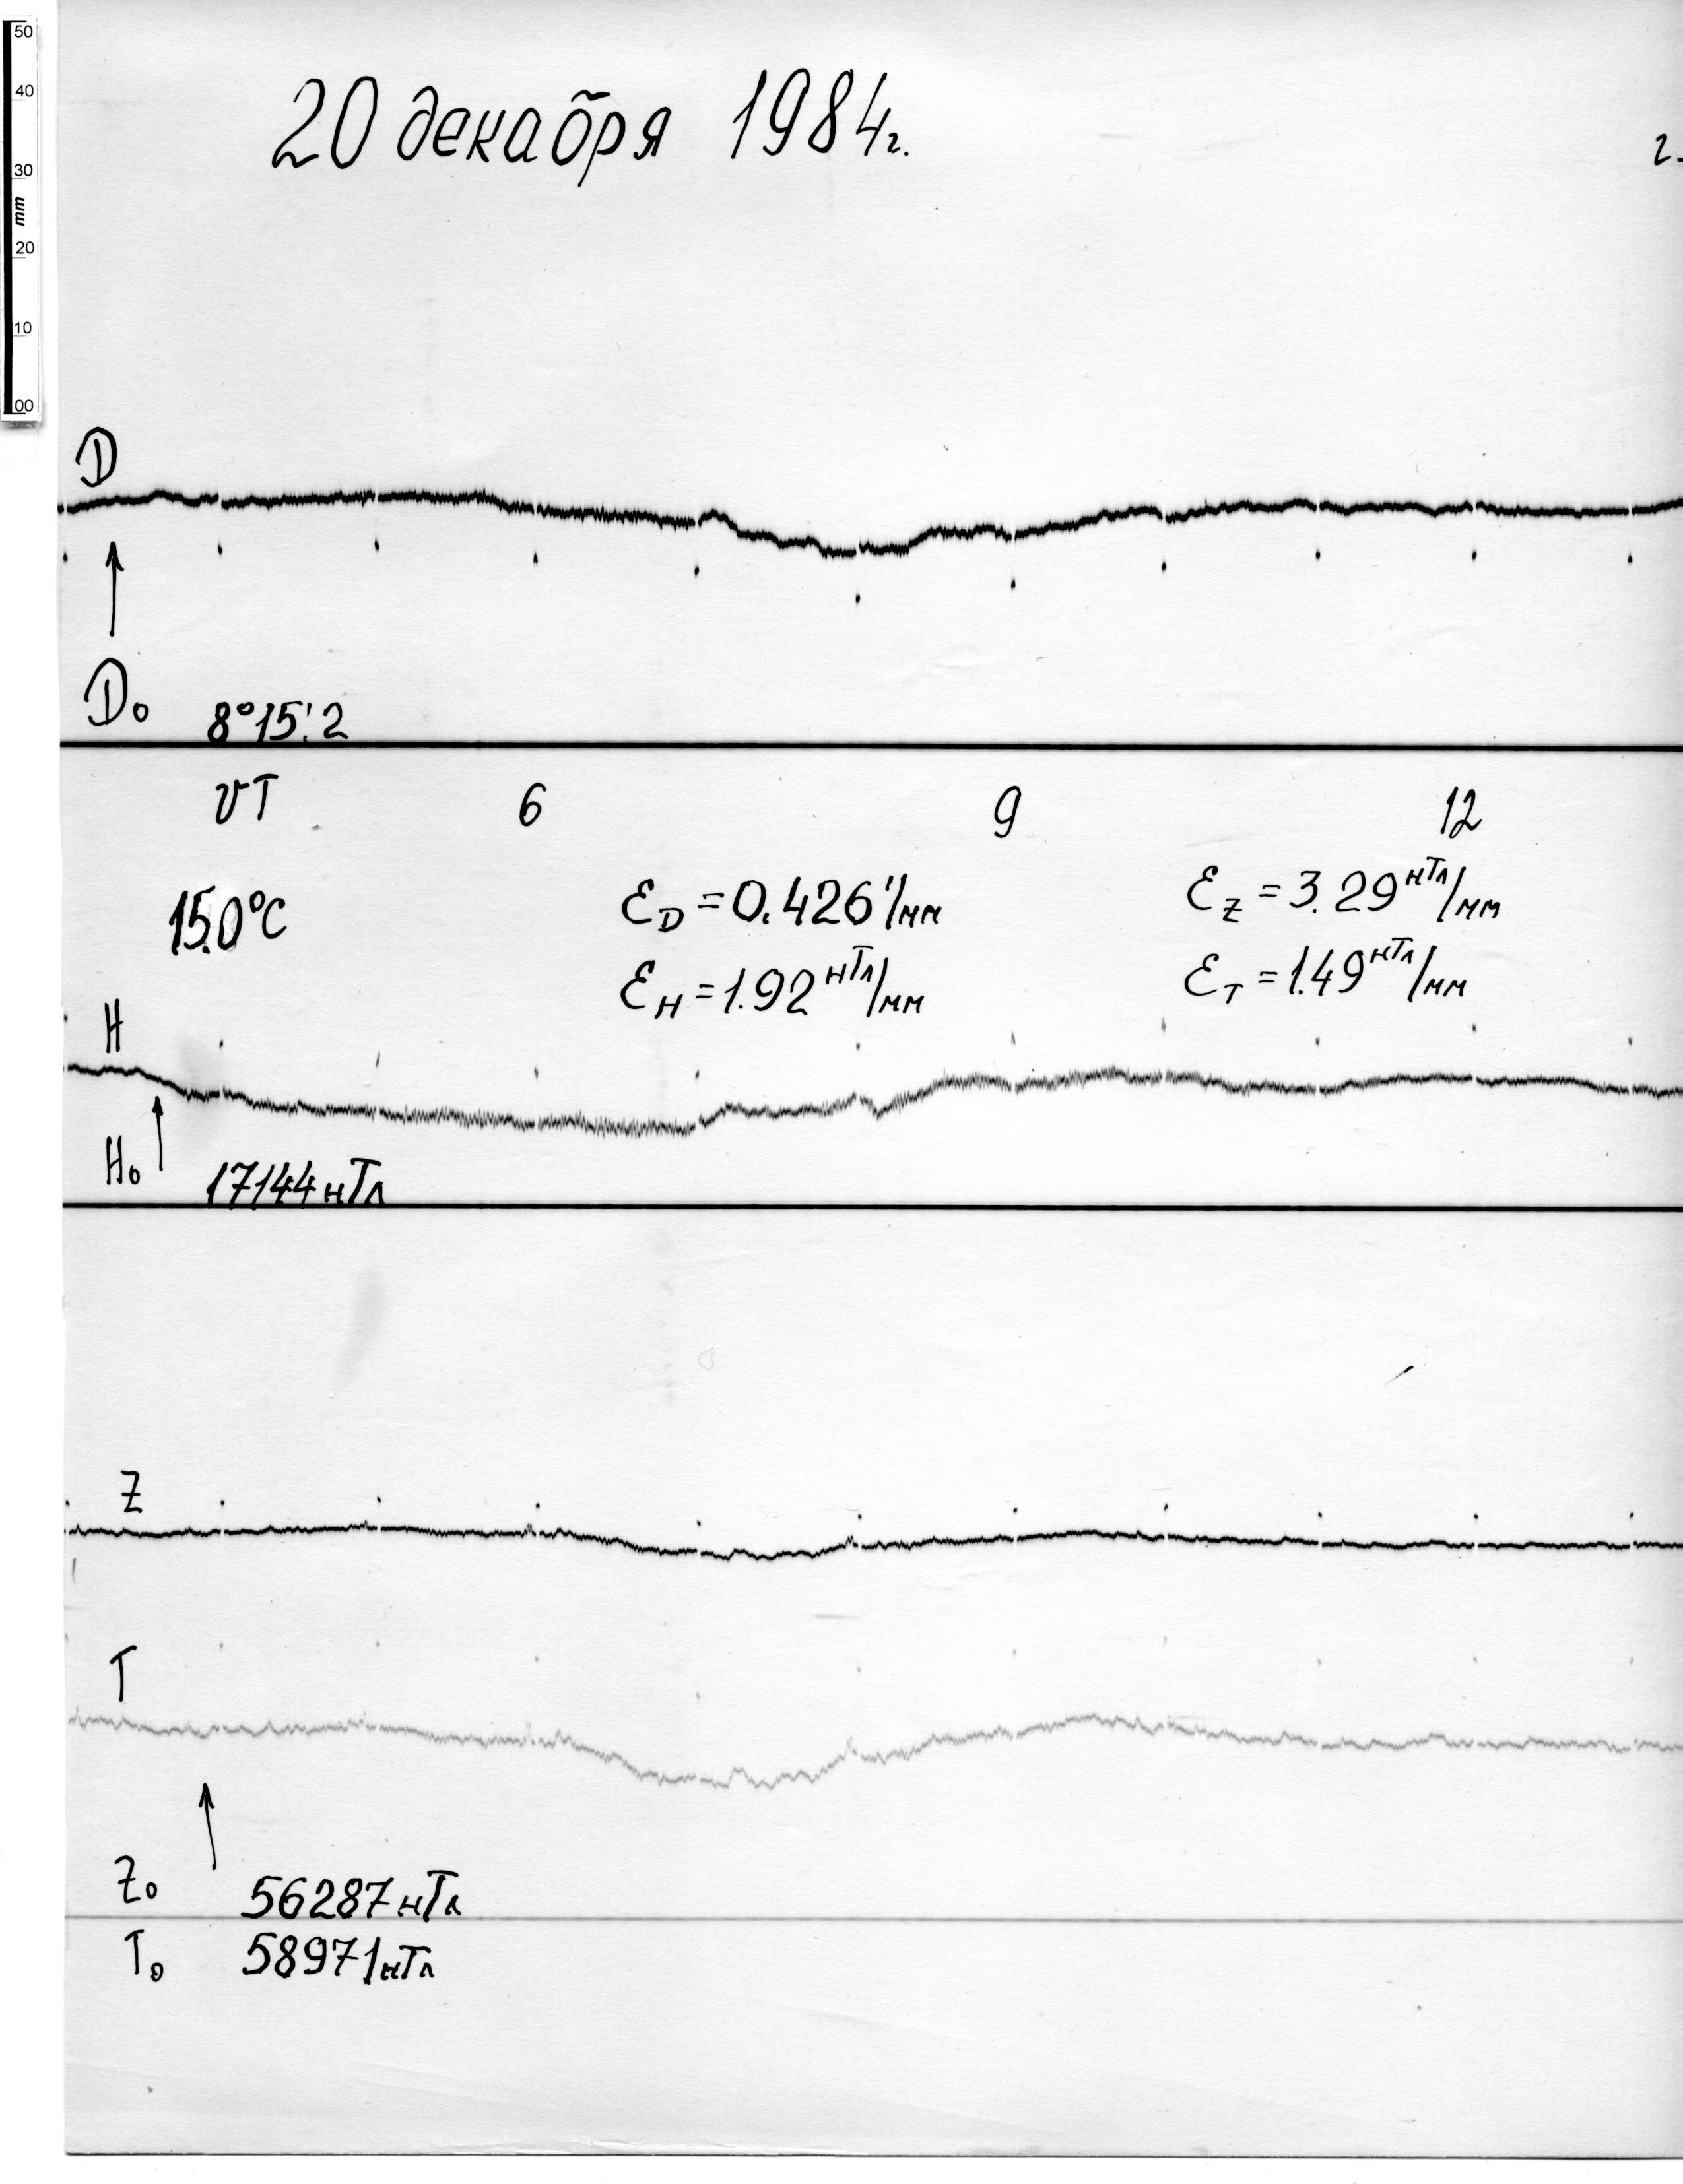 50
40
30
mm
20
10
00
20 декабря 1984г.
г.
D
D₀ 8°15!2
UT 6 9 12
15.0°C
ε_D = 0.426'/мм
ε_H = 1.92 нТл/мм
ε_Z = 3.29 нТл/мм
ε_T = 1.49 нТл/мм
H
H₀ 17144 нТл
Z
T
Z₀ 56287 нТл
T₀ 58971 нТл